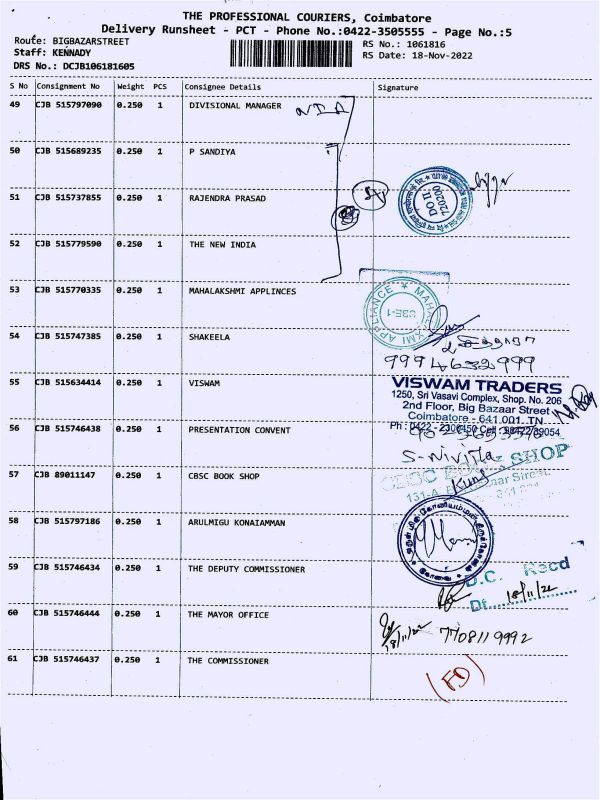 THE PROFESSIONAL COURIERS, Coimbatore
Delivery Runsheet - PCT - Phone No.:0422-3505555 - Page No.:5
Route: BIGBAZARSTREET
RS No.: 1061816
Staff: KENNADY
RS Date: 18-Nov-2022
DRS No.: DCJB106181605
S No Consignment No Weight PCS Consignee Details Signature
49 CJB 515797090 0.250 1 DIVISIONAL MANAGER
50 CJB 515689235 0.250 1 P SANDIYA
51 CJB 515737855 0.250 1 RAJENDRA PRASAD
DO II
720200
52 CJB 515779590 0.250 1 THE NEW INDIA
53 CJB 515770335 0.250 1 MAHALAKSHMI APPLINCES
CBE-1
54 CJB 515747385 0.250 1 SHAKEELA
9994632999
55 CJB 515634414 0.250 1 VISWAM
VISWAM TRADERS
1250, Sri Vasavi Complex, Shop. No. 206
2nd Floor, Big Bazaar Street
Coimbatore - 641 001. TN
56 CJB 515746438 0.250 1 PRESENTATION CONVENT
57 CJB 89011147 0.250 1 CBSC BOOK SHOP
SHOP
58 CJB 515797186 0.250 1 ARULMIGU KONAIAMMAN
59 CJB 515746434 0.250 1 THE DEPUTY COMMISSIONER
D.C. Recd
Dt. 18/11/22
60 CJB 515746444 0.250 1 THE MAYOR OFFICE
18/11/22 7708119992
61 CJB 515746437 0.250 1 THE COMMISSIONER
(FD)